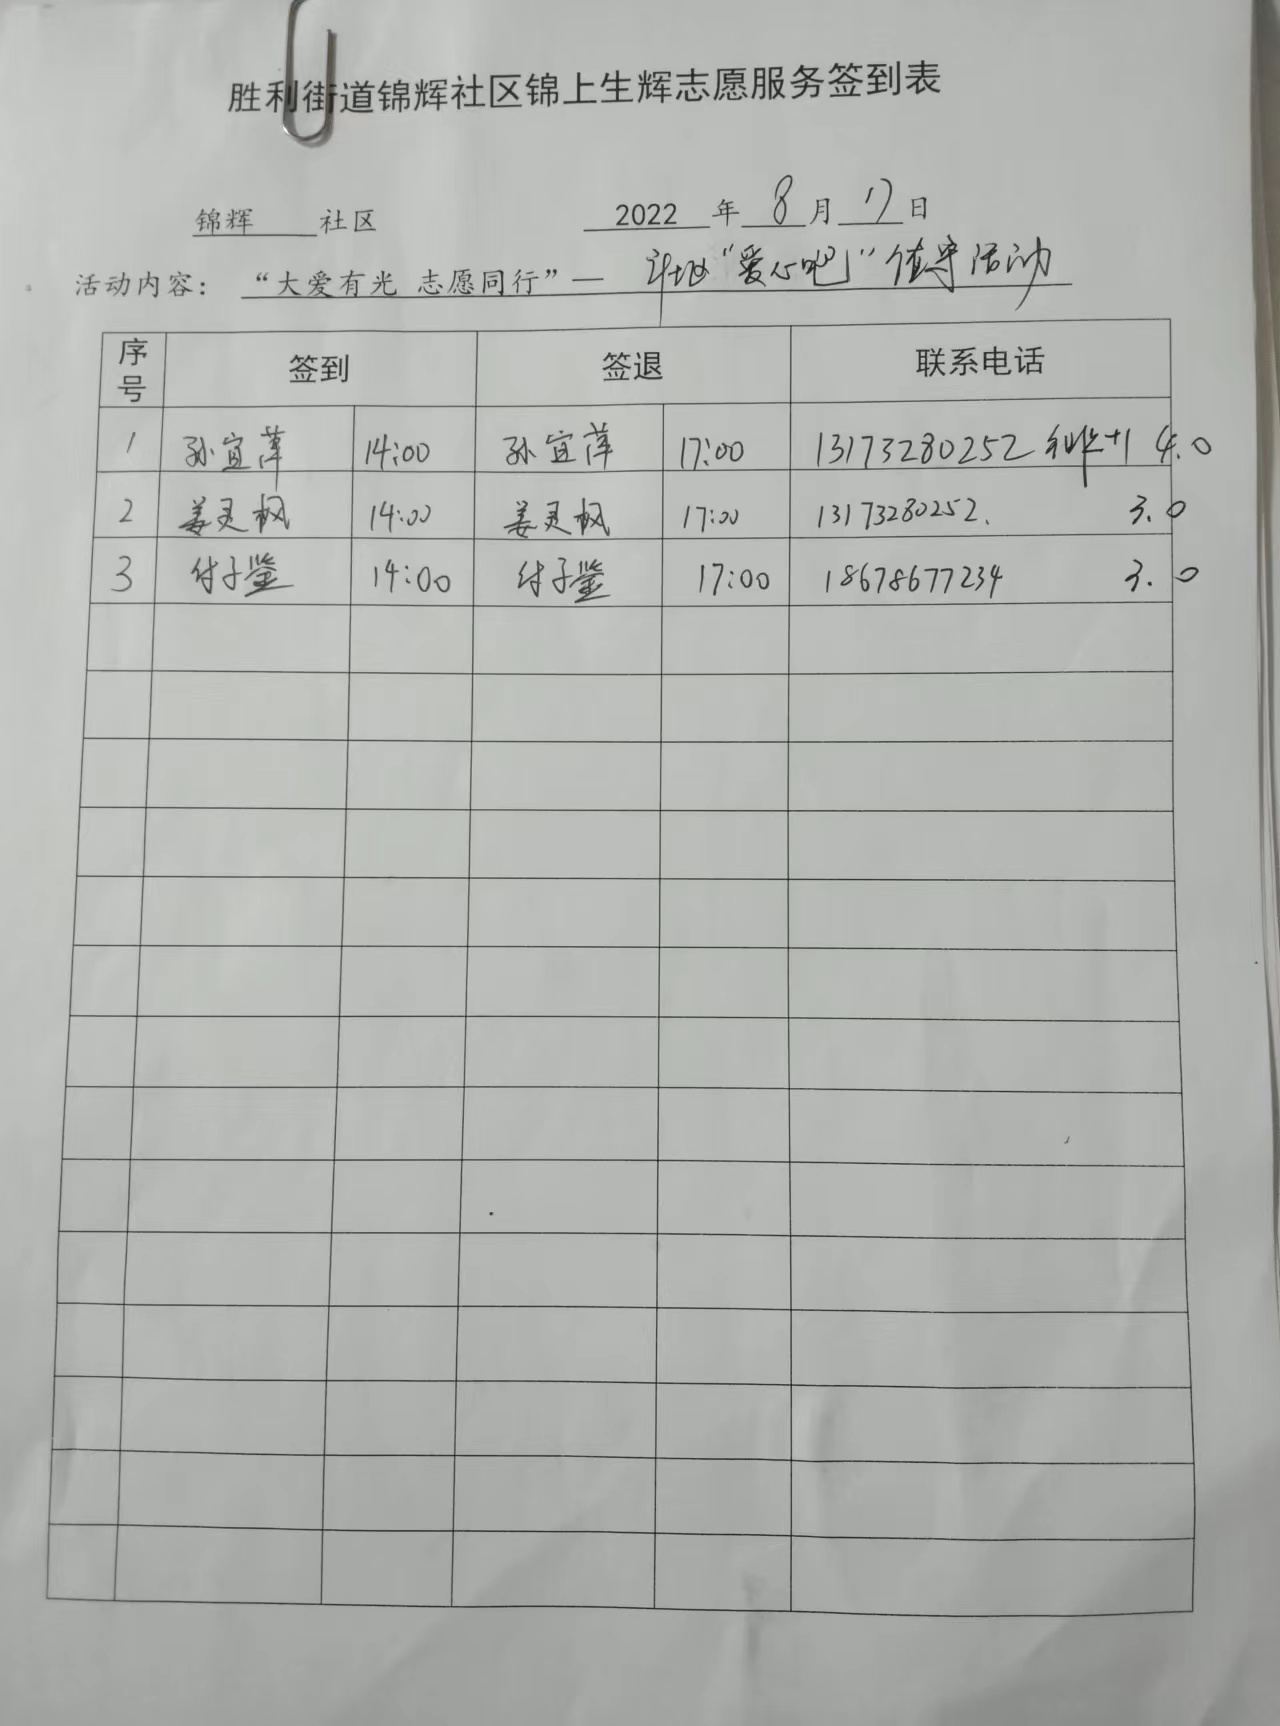 胜利街道锦辉社区锦上生辉志愿服务签到表
锦辉 社区 2022 年 8 月 17 日
活动内容： “大爱有光 志愿同行”— “爱心吧”值守活动
序号 签到 签退 联系电话
1 孙宜萍 14:00 孙宜萍 17:00 13173280252 +1 4.0
2 姜灵枫 14:00 姜灵枫 17:00 13173280252. 3.0
3 付子鉴 14:00 付子鉴 17:00 18678677234 3.0